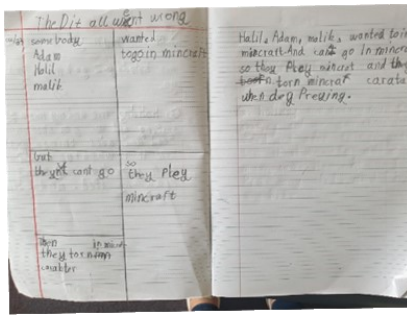 The Dit all went wrong
somebody
Adam
Halil
malik
wanted
to go in mincraft
but
they cant go
so
they Pley
mincraft
then
they torn
carakter
Halil, Adam, malik, wanted to in
mincraft And cant go In mincr
so they Pley mincraft and they
torn mincraf carata
when dog Preying.